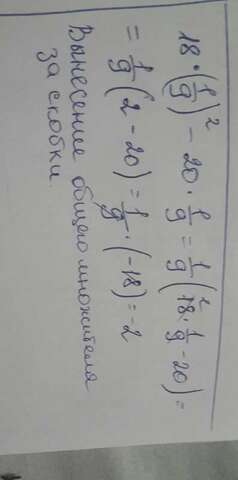 18·(1/9)² − 20·1/9 = 1/9(18·1/9 − 20) =
= 1/9(2 − 20) = 1/9·(−18) = −2
Вынесение общего множителя
за скобки.